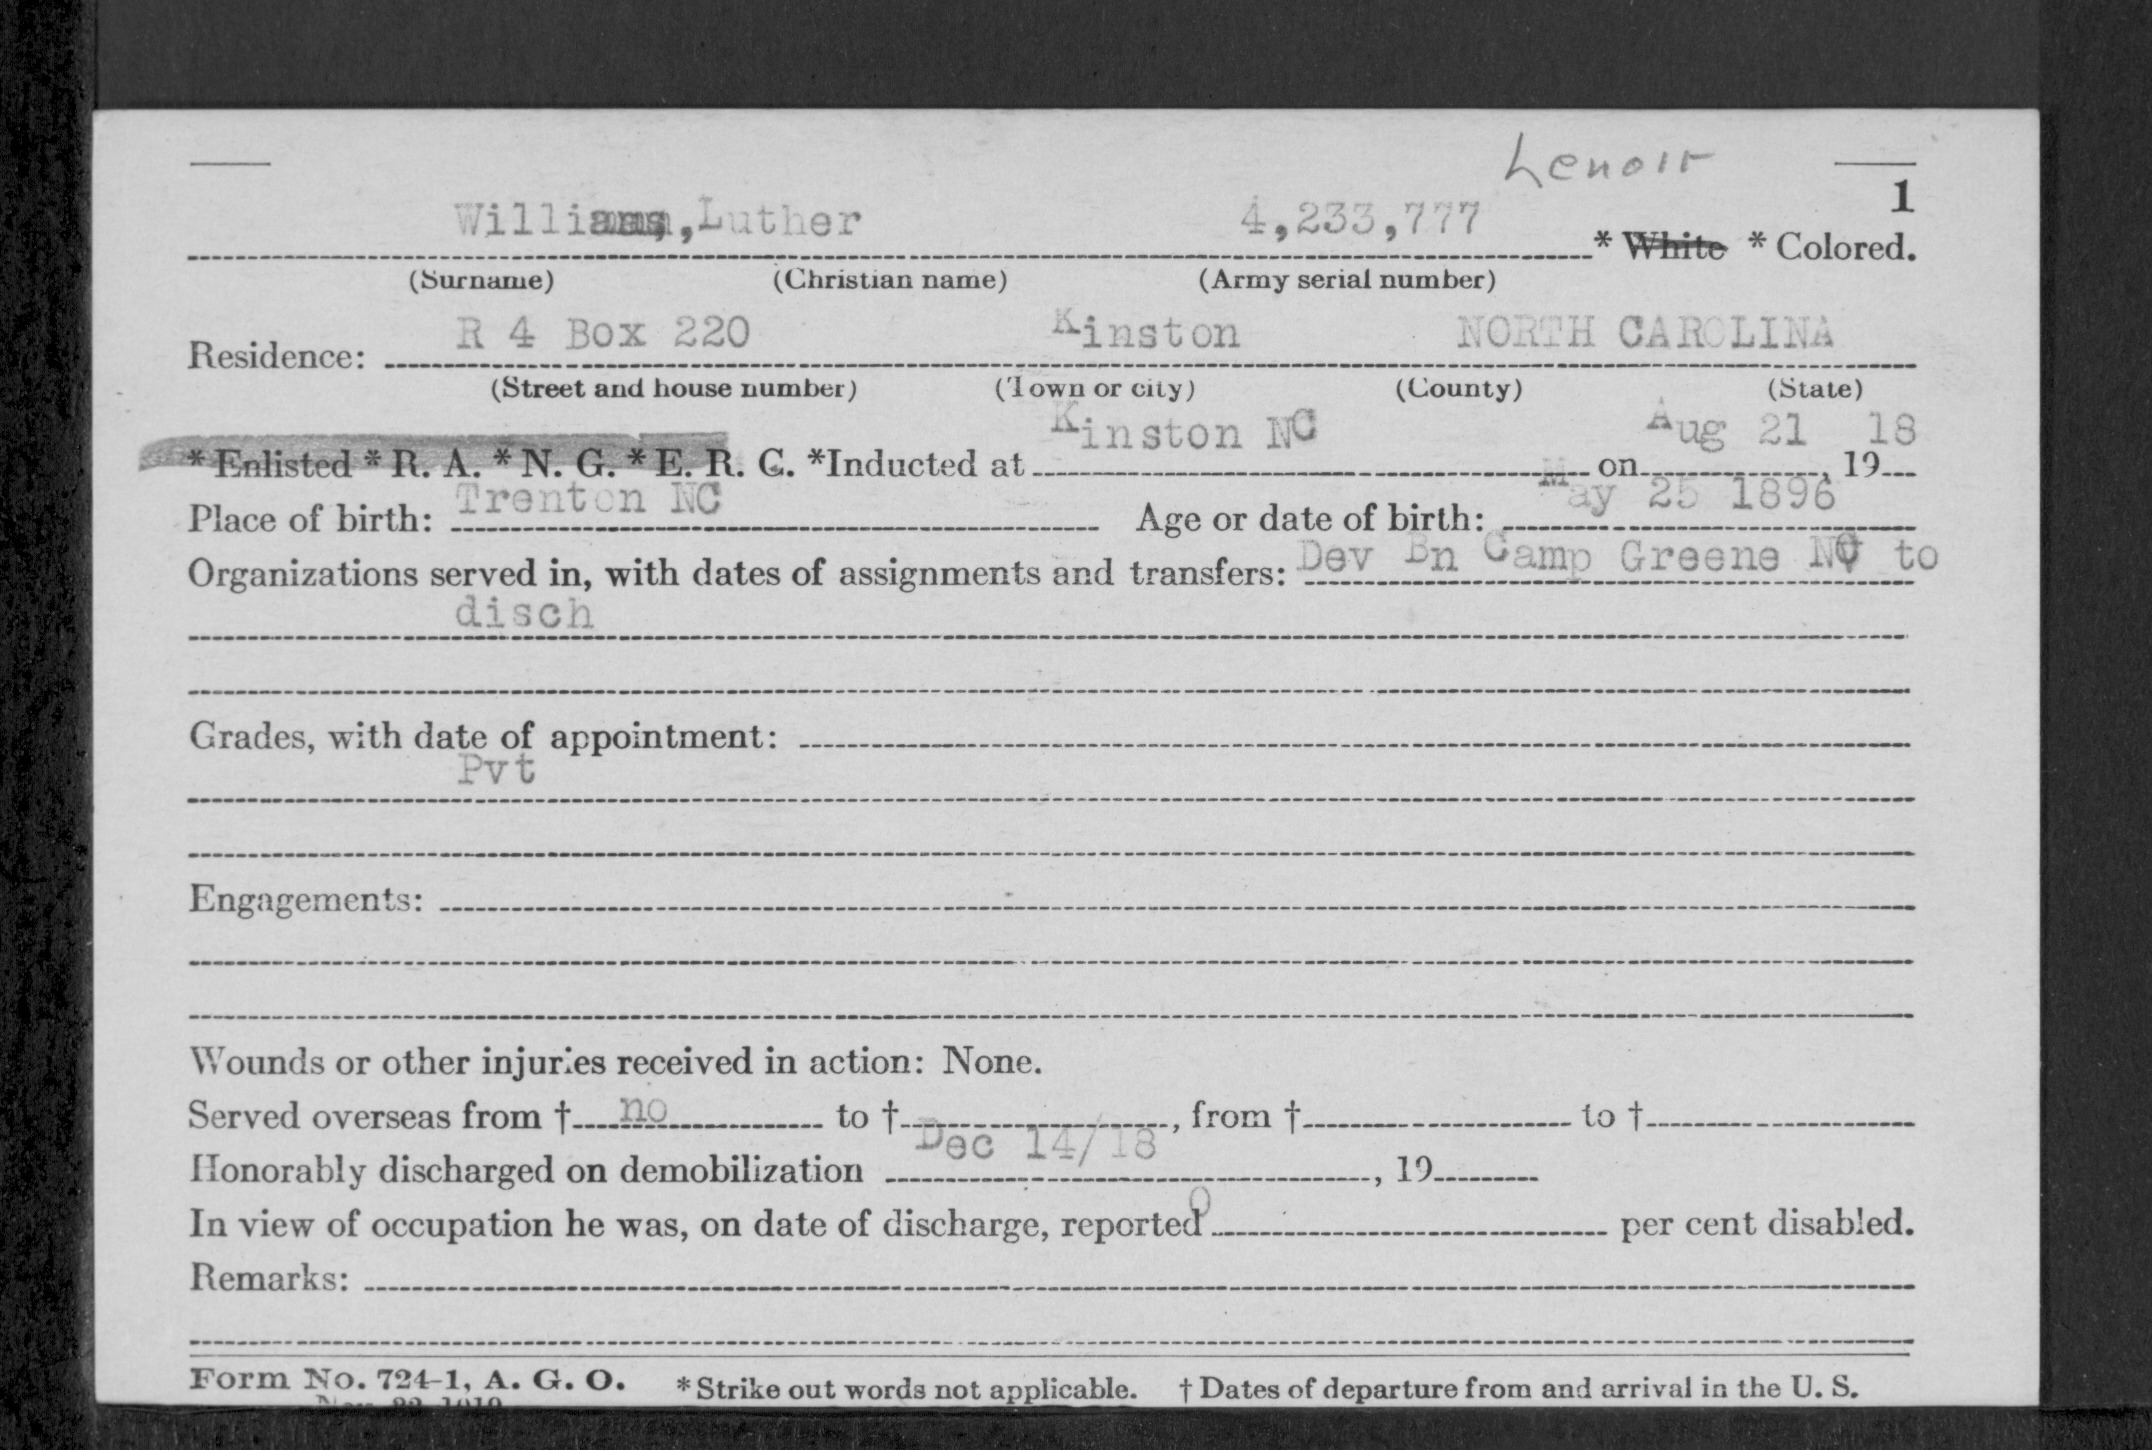 Lenoir
1
Williams, Luther 4,233,777 * White * Colored.
(Surname) (Christian name) (Army serial number)
Residence: R 4 Box 220 Kinston NORTH CAROLINA
(Street and house number) (Town or city) (County) (State)
*Enlisted *R. A. *N. G. *E. R. C. *Inducted at Kinston NC on Aug 21, 19 18
Place of birth: Trenton NC Age or date of birth: May 25 1896
Organizations served in, with dates of assignments and transfers: Dev Bn Camp Greene NC to
disch
Grades, with date of appointment:
Pvt
Engagements:
Wounds or other injuries received in action: None.
Served overseas from † no to †, from † to †
Honorably discharged on demobilization Dec 14/18, 19
In view of occupation he was, on date of discharge, reported 0 per cent disabled.
Remarks:
Form No. 724-1, A. G. O. *Strike out words not applicable. † Dates of departure from and arrival in the U. S.